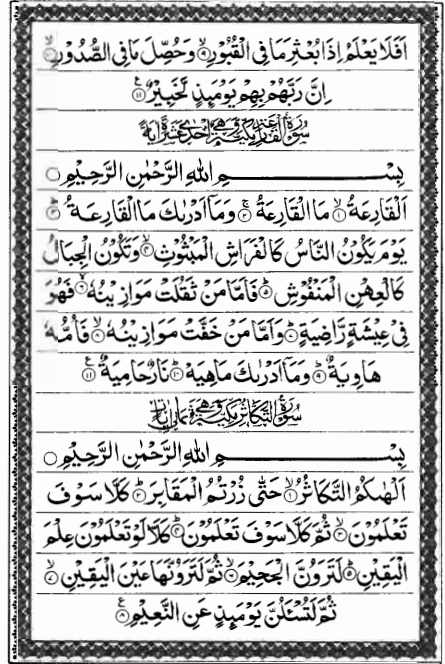 اَفَلَا يَعْلَمُ اِذَا بُعْثِرَ مَا فِى الْقُبُوْرِ ۙ۹ وَحُصِّلَ مَا فِى الصُّدُوْرِ ۙ۱۰
اِنَّ رَبَّهُمْ بِهِمْ يَوْمَىِٕذٍ لَّخَبِيْرٌ ۧ۱۱
سُوْرَةُ الْقَارِعَةِ مَكِّيَّةٌ وَّهِىَ اِحْدٰى عَشَرَةَ اٰيَةً
بِسْمِ اللهِ الرَّحْمٰنِ الرَّحِيْمِ
اَلْقَارِعَةُ ۙ۱ مَا الْقَارِعَةُ ۚ۲ وَمَاۤ اَدْرٰىكَ مَا الْقَارِعَةُ ؕ۳
يَوْمَ يَكُوْنُ النَّاسُ كَالْفَرَاشِ الْمَبْثُوْثِ ۙ۴ وَتَكُوْنُ الْجِبَالُ
كَالْعِهْنِ الْمَنْفُوْشِ ؕ۵ فَاَمَّا مَنْ ثَقُلَتْ مَوَازِيْنُهٗ ۙ۶ فَهُوَ
فِىْ عِيْشَةٍ رَّاضِيَةٍ ؕ۷ وَاَمَّا مَنْ خَفَّتْ مَوَازِيْنُهٗ ۙ۸ فَاُمُّهٗ
هَاوِيَةٌ ؕ۹ وَمَاۤ اَدْرٰىكَ مَا هِيَهْ ؕ۱۰ نَارٌ حَامِيَةٌ ۧ۱۱
سُوْرَةُ التَّكَاثُرِ مَكِّيَّةٌ وَّهِىَ ثَمَانِىْ اٰيَاتٍ
بِسْمِ اللهِ الرَّحْمٰنِ الرَّحِيْمِ
اَلْهٰىكُمُ التَّكَاثُرُ ۙ۱ حَتّٰى زُرْتُمُ الْمَقَابِرَ ؕ۲ كَلَّا سَوْفَ
تَعْلَمُوْنَ ۙ۳ ثُمَّ كَلَّا سَوْفَ تَعْلَمُوْنَ ؕ۴ كَلَّا لَوْ تَعْلَمُوْنَ عِلْمَ
الْيَقِيْنِ ؕ۵ لَتَرَوُنَّ الْجَحِيْمَ ۙ۶ ثُمَّ لَتَرَوُنَّهَا عَيْنَ الْيَقِيْنِ ۙ۷
ثُمَّ لَتُسْئَلُنَّ يَوْمَىِٕذٍ عَنِ النَّعِيْمِ ۧ۸